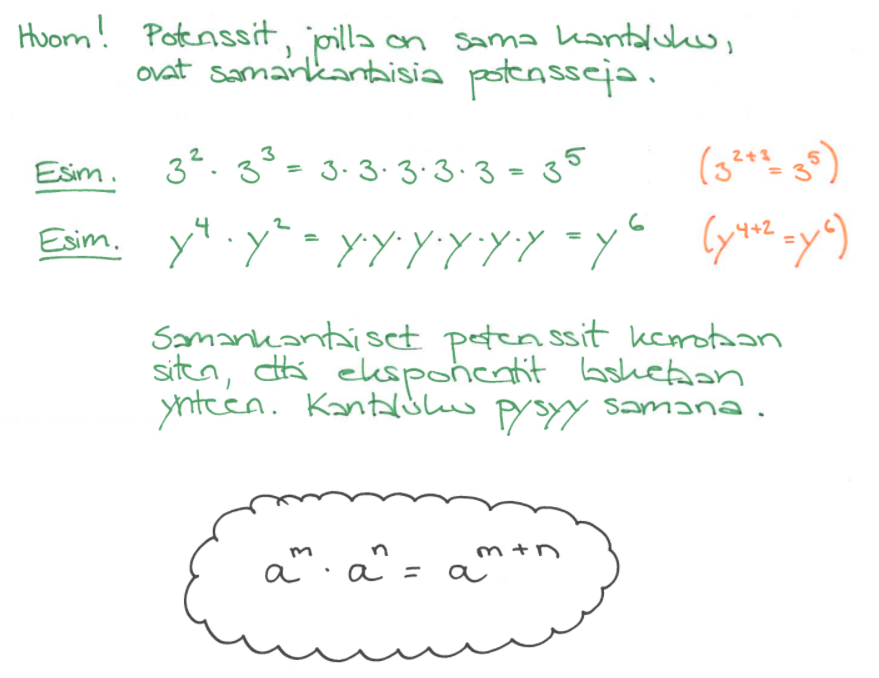 Huom! Potenssit, joilla on sama kantaluku,
ovat samankantaisia potensseja.
Esim. 3² · 3³ = 3·3·3·3·3 = 3⁵ (3²⁺³ = 3⁵)
Esim. y⁴ · y² = y·y·y·y·y·y = y⁶ (y⁴⁺² = y⁶)
Samankantaiset potenssit kerrotaan
siten, että eksponentit lasketaan
yhteen. Kantaluku pysyy samana.
aᵐ · aⁿ = aᵐ⁺ⁿ